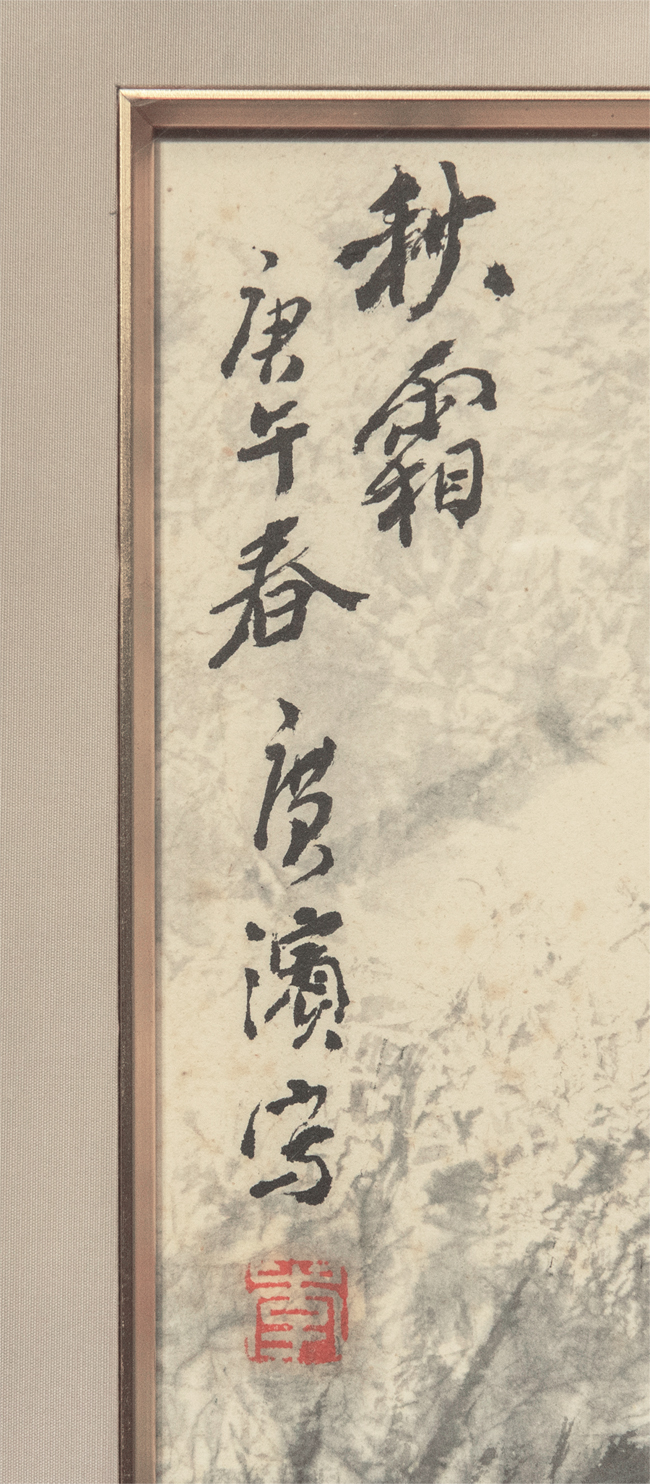 秋霜
庚午春廣濱写